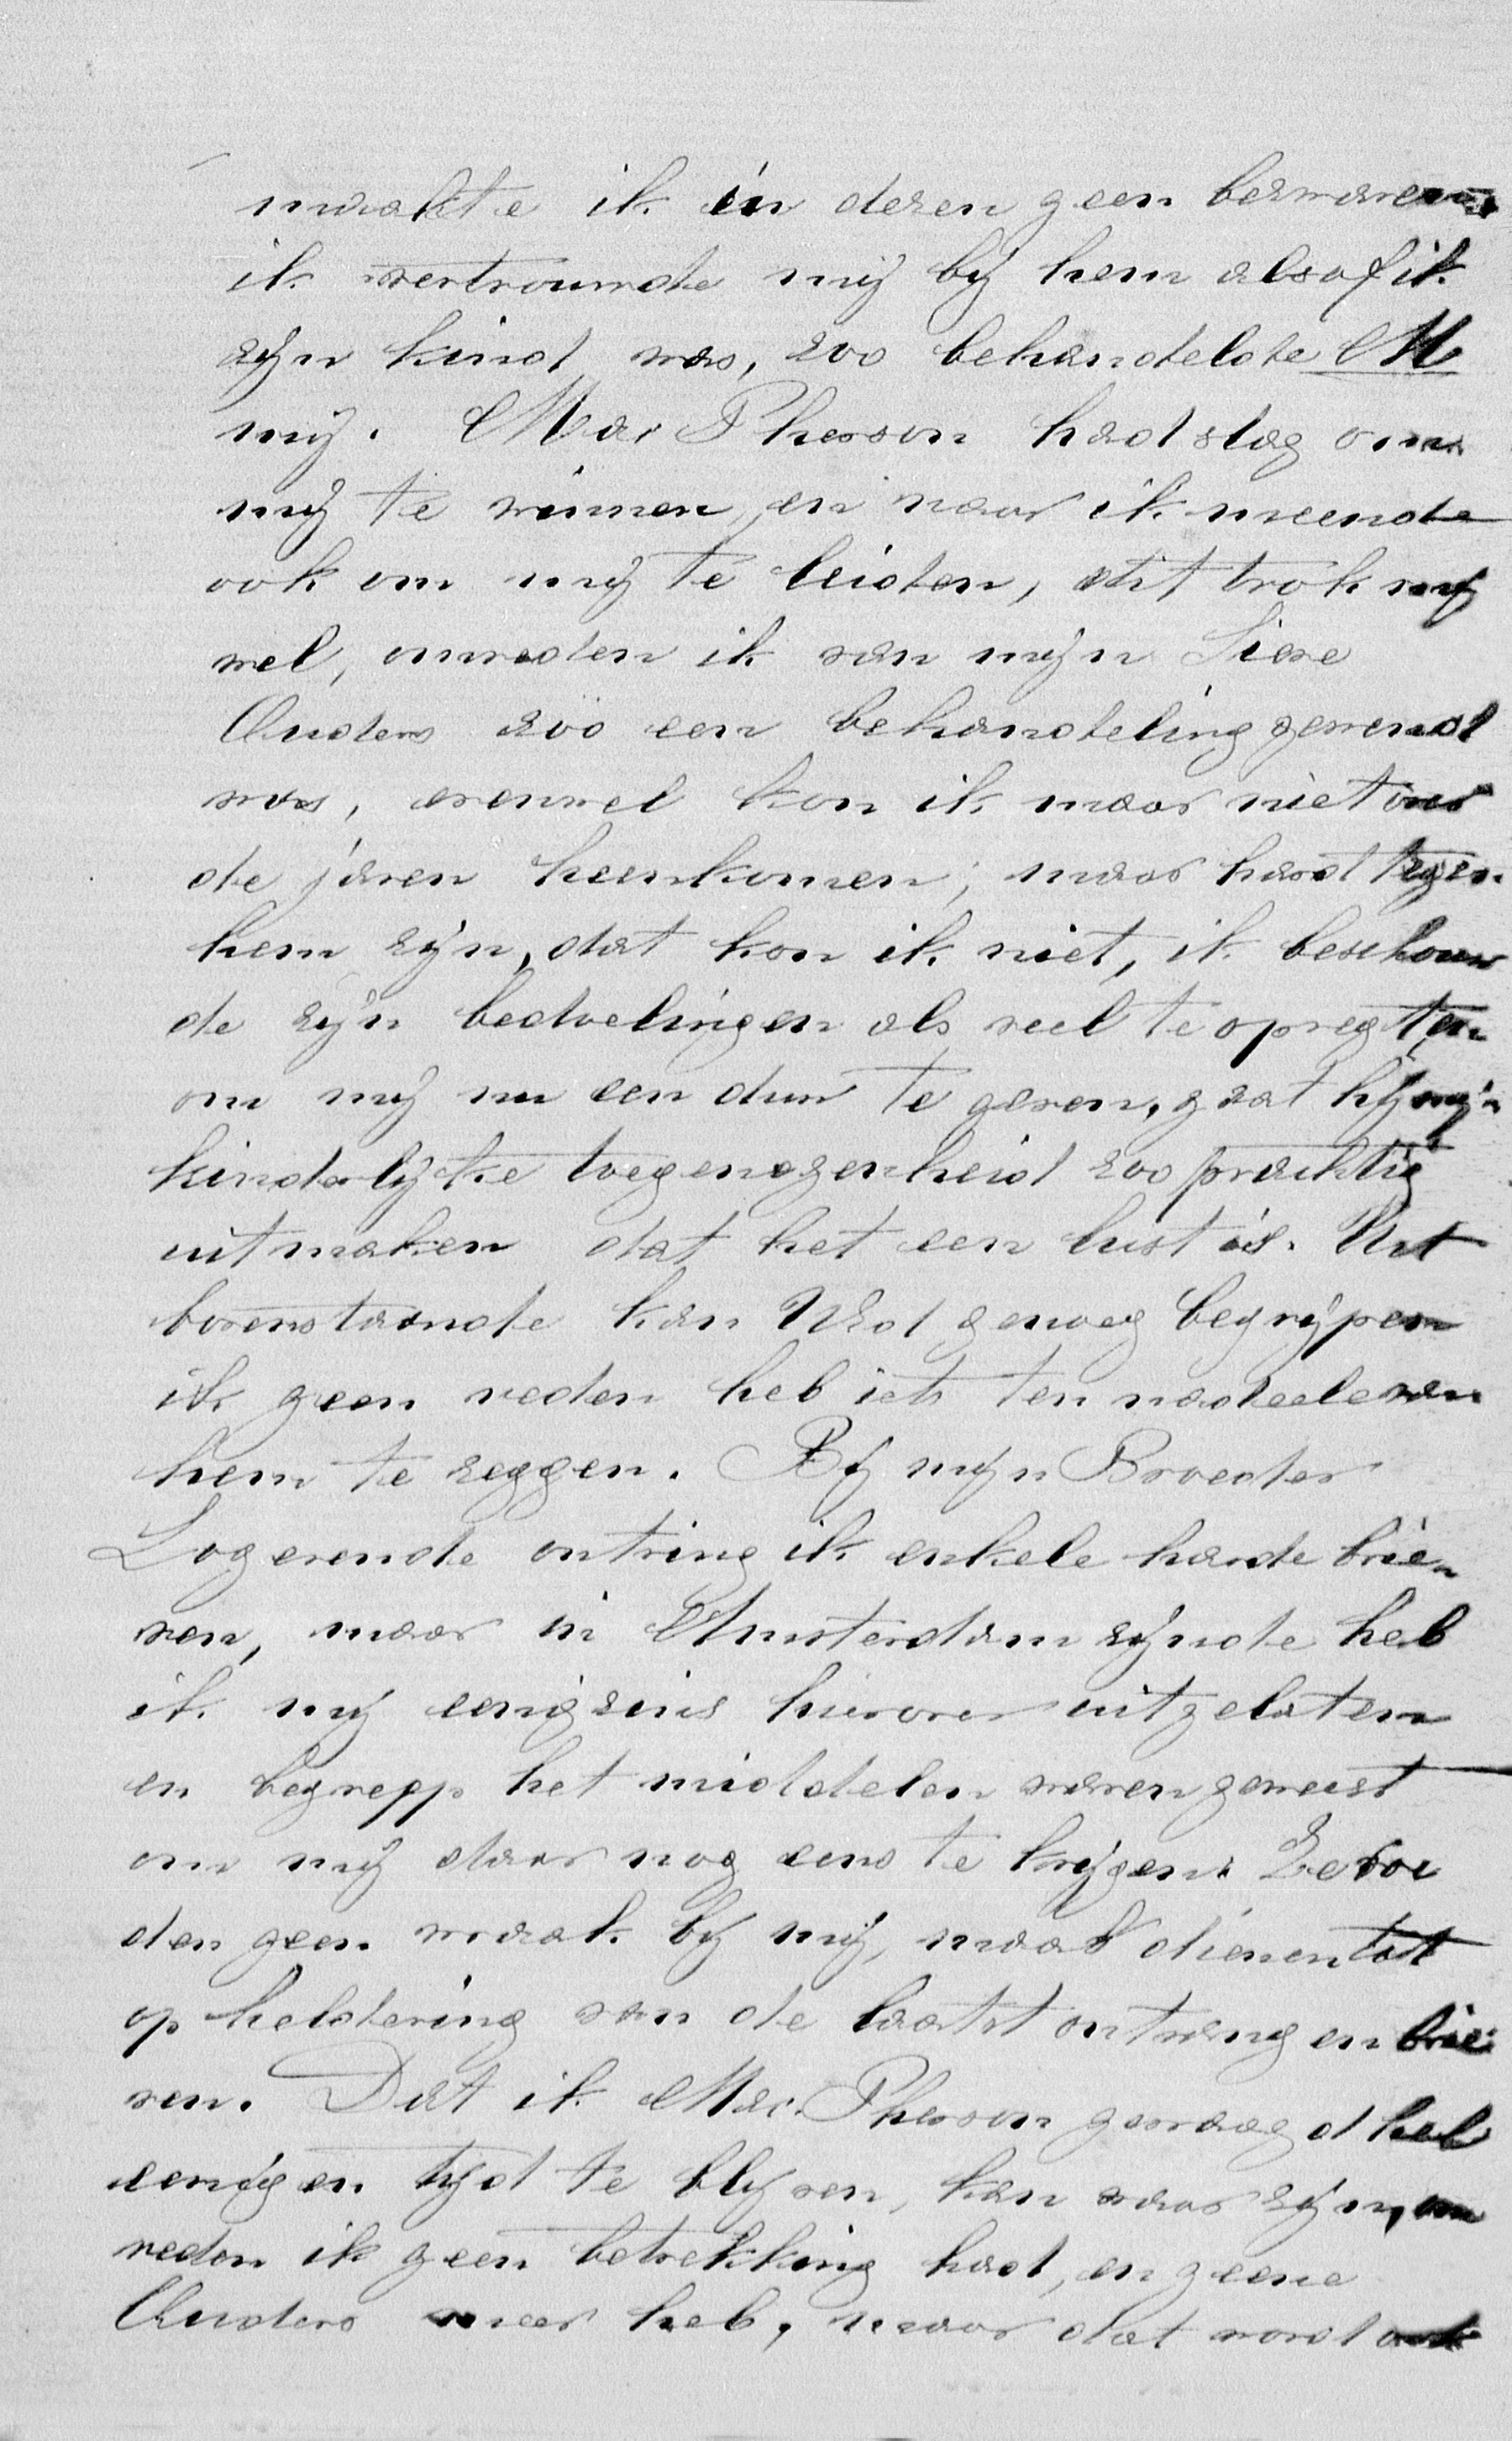 maakte ik in dezen geen bezwaren
ik vertrouwde mij bij hem alsof ik
zijn kind was, zoo behandelde M
mij. Mac Pherson had slag om
mij te winnen, en naar ik meende
ook om mij te leiden, dit trok mij
wel, omreden ik van mijn Lieve
Ouders zoo een behandeling gewend
was, evenwel kon ik maar niet over
de jaren heenkomen, maar hard tegen
hem zijn, dat kon ik niet, ik beschouw
de zijn bedoelingen als veel te opregt, en
om mij nu een duw te geven, gaat hij mijn
kinderlijke toegenegenheid zoo prachtig
uitmaken dat het een lust is. Uit
bovenstaande kan UEd genoeg begrijpen
ik geen reden heb iets ten nadeele van
hem te zeggen. Bij mijn Broeder
Logerende ontving ik enkele harde brie
ven, maar in Amsterdam zijnde heb
ik mij enigzins hierover uitgelaten
en begrepp het middelen waren geweest
om mij daar nog eens te krijgen. Ze voe
den geen wraak bij mij, maar dienen tot
opheldering van de laatst ontvangen brie
ven. Dat ik Mac. Pherson gevraagd heb
eenigen tijd te blijven, kan waar zijn, om
reden ik geen betrekking had, en geene
Ouders meer heb, maar dat word ook